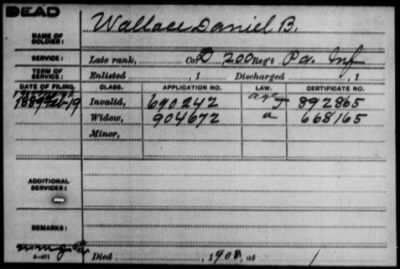 DEAD
NAME OF SOLDIER: Wallace Daniel B.
SERVICE: Late rank, Co. D 200 Reg't Pa. Inf
TERM OF SERVICE: Enlisted , 1 Discharged , 1
DATE OF FILING. CLASS. APPLICATION NO. LAW. CERTIFICATE NO.
Invalid, 690242 892865
Widow, 904672 a 668165
Minor,
ADDITIONAL SERVICES:
REMARKS:
Died , 1908, at